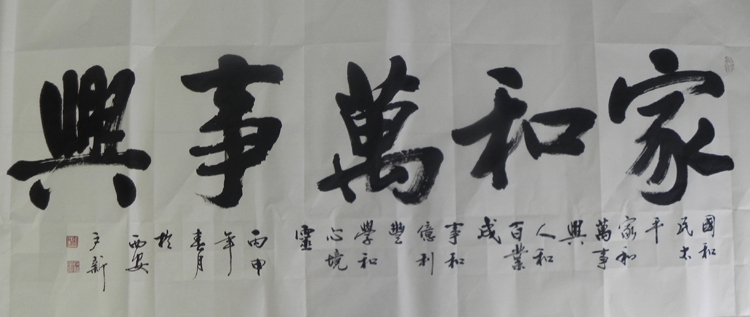 家和萬事興
國和
民太
平
家和
萬事
興
人和
百業
成
事和
億利
豐
學和
心境
靈
丙申
年
春月
於
西安
新